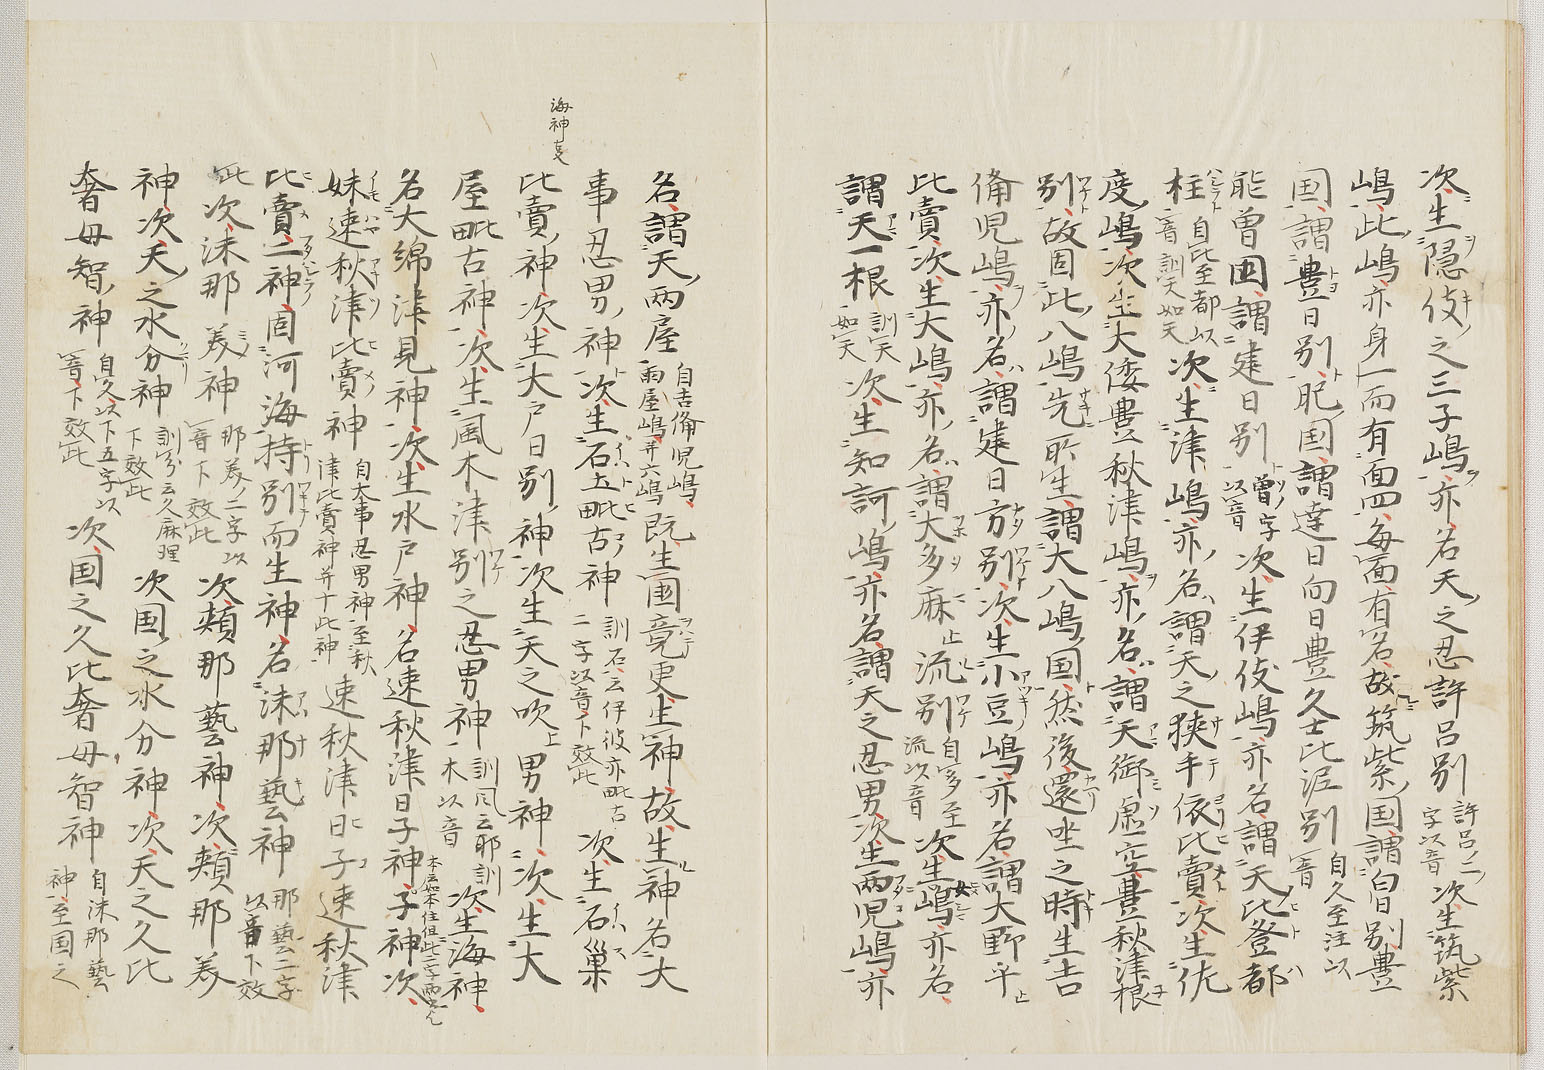 次生隠伎之三子嶋亦名天之忍許呂別 許呂二字以音 次生筑紫
嶋此嶋亦身一而有面四毎面有名故筑紫国謂白日別豊
国謂豊日別肥国謂達日向日豊久士比泥別 自久至泥以音
能曽国謂建日別 曽字以音 次生伊伎嶋亦名謂天比登都
柱 自比至都以音訓天如天 次生津嶋亦名謂天之狭手依比賣次生佐
度嶋次生大倭豊秋津嶋亦名謂天御虚空豊秋津根
別故因此八嶋先所生謂大八嶋国然後還坐之時生吉
備児嶋亦名謂建日方別次生小豆嶋亦名謂大野手上
比賣次生大嶋亦名謂大多麻上流別 自多至流以音 次生女嶋亦名
謂天一根 訓天如天 次生知訶嶋亦名謂天之忍男次生両児嶋亦
名謂天両屋 自吉備児嶋両屋嶋并六嶋 既生国竟更生神故生神名大
事忍男神次生石土毗古神 訓石云伊波亦毗古二字以音下效此 次生石巣
海神支
比賣神次生大戸日別神次生天之吹上男神次生大
屋毗古神次生風木津別之忍男神 訓風云耶訓木以音 次生海神
名大綿津見神次生水戸神名速秋津日子神次
妹速秋津比賣神 自大事忍男神至秋津比賣神并十此神 速秋津日子速秋津
比賣二神因河海持別而生神名沫那藝神 那藝二字以音下效
此 次沫那美神 那美二字以音下效此 次頬那藝神次頬那美
神次天之水分神 訓分云久麻理下效此 次国之水分神次天之久比
奢母智神 自久以下五字以音下效此 次国之久比奢母智神 自沫那藝神至国之